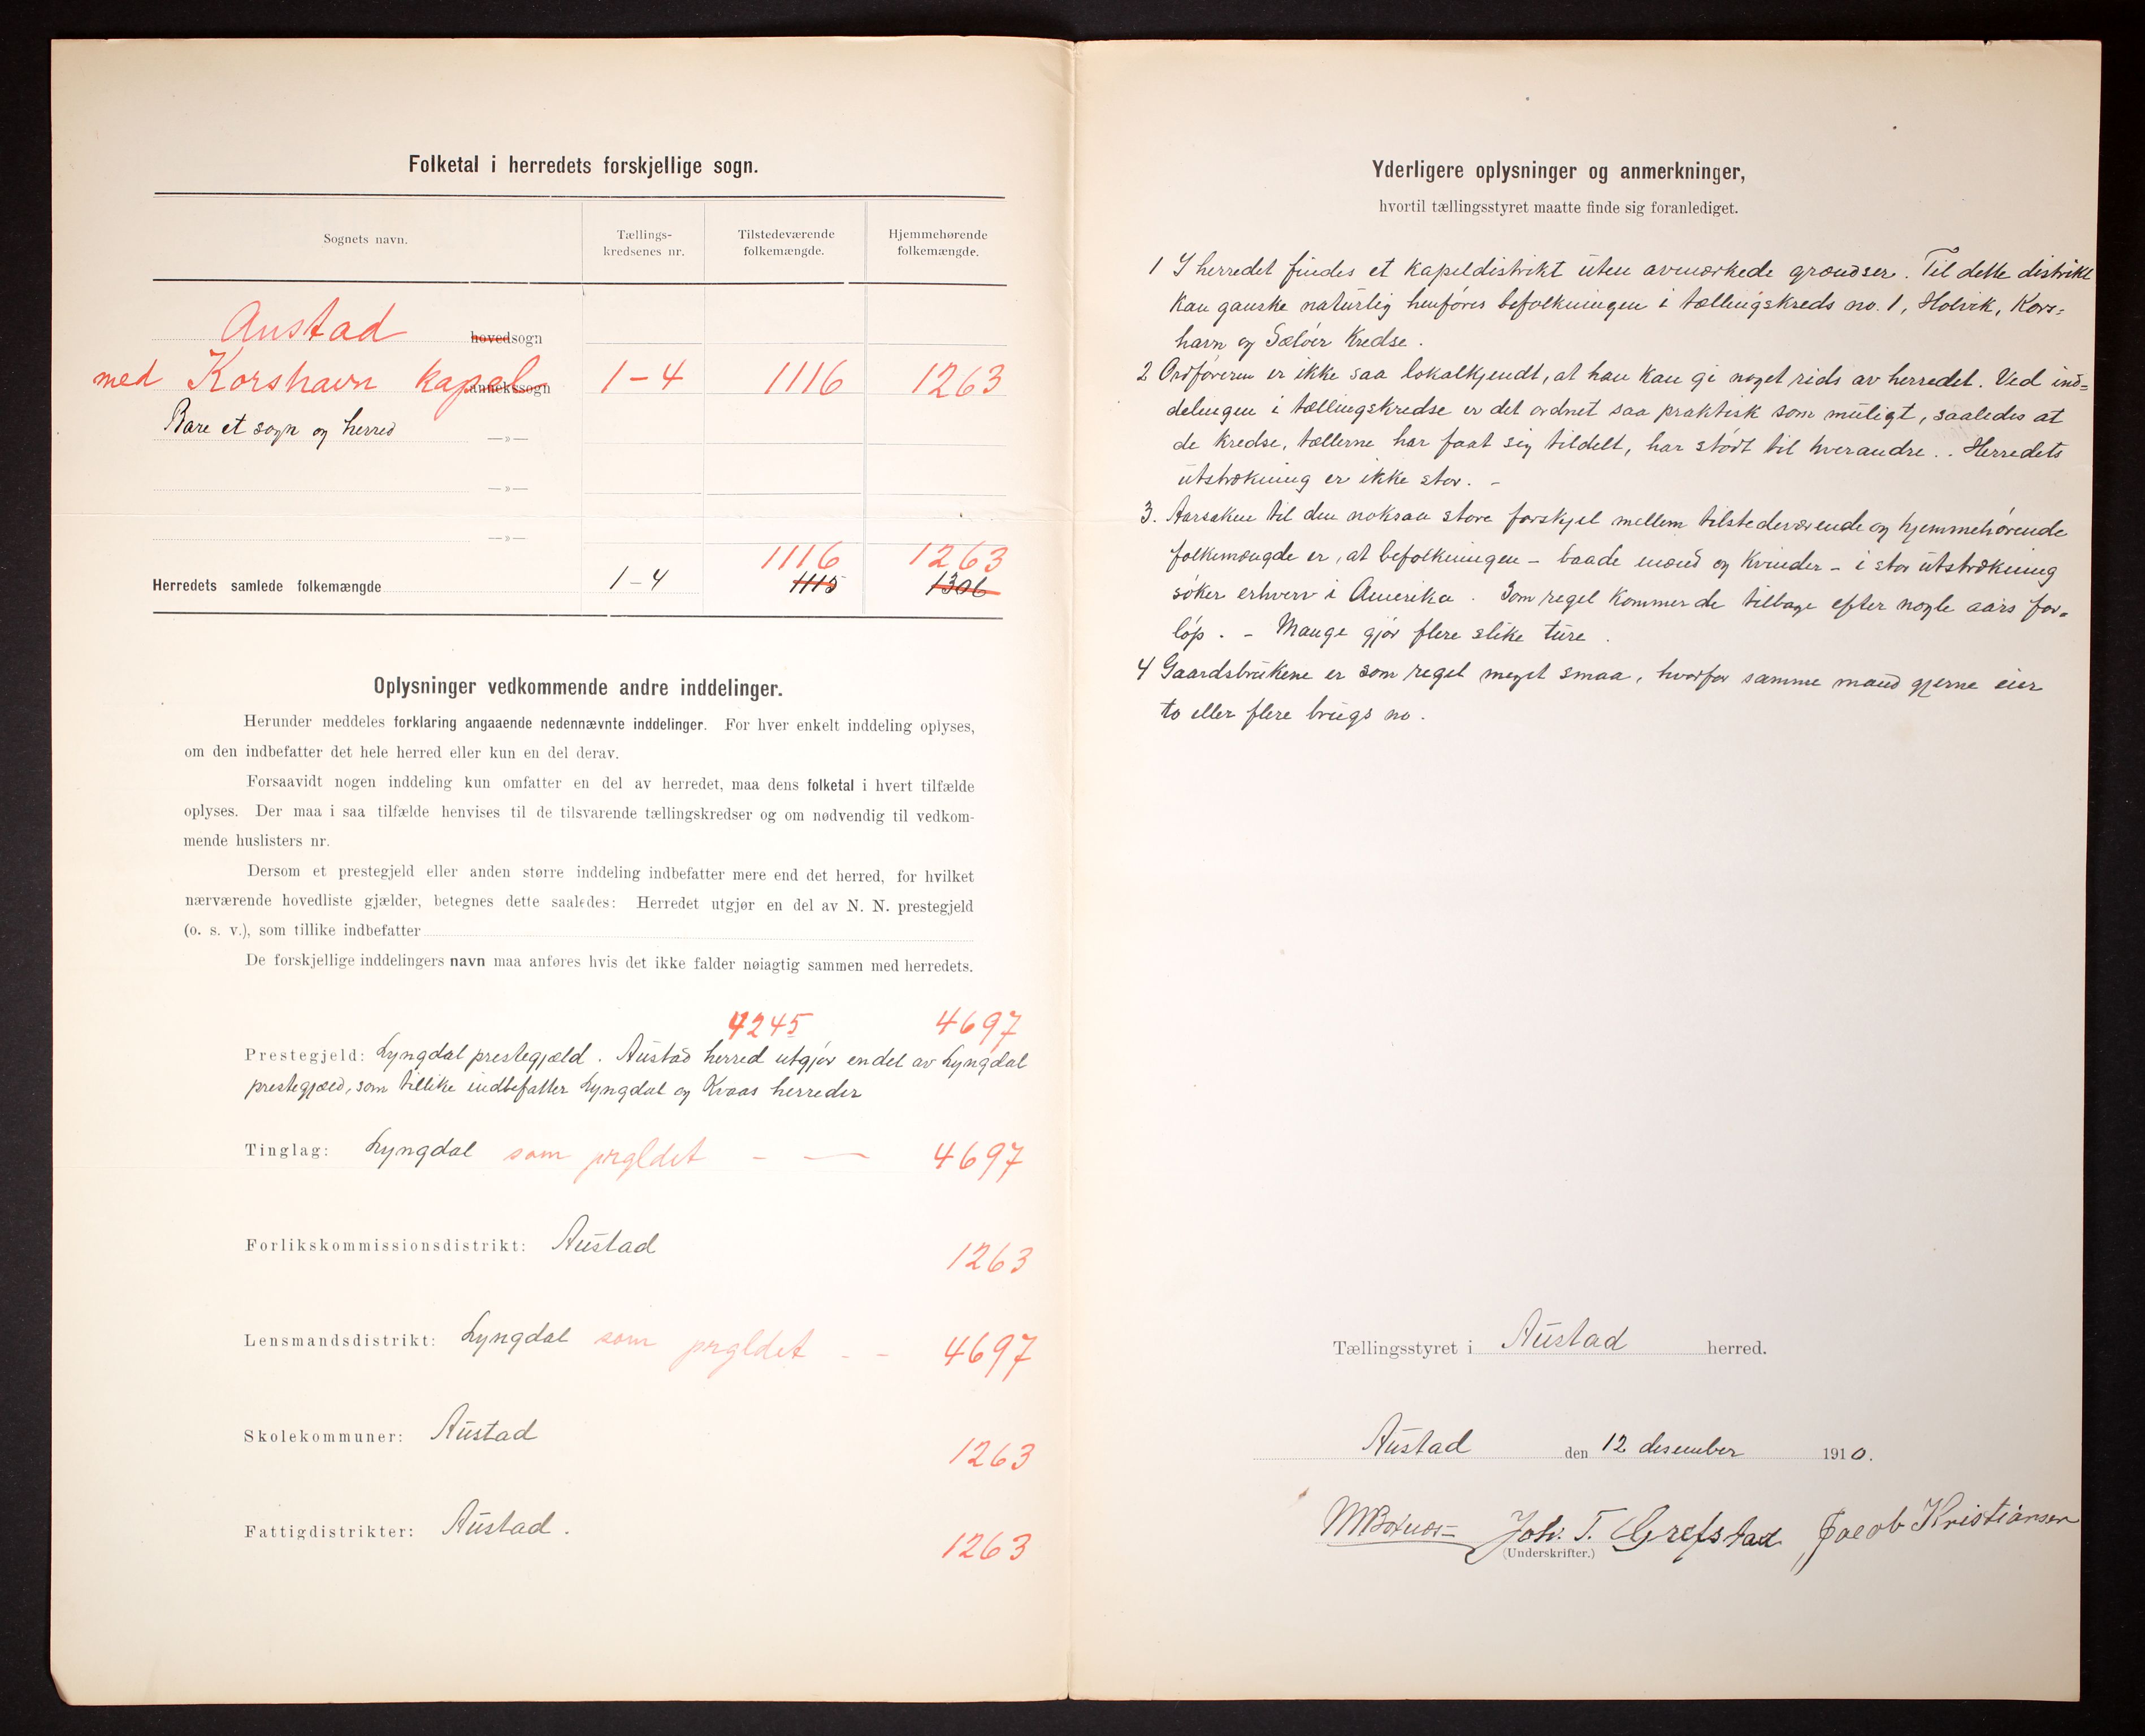 Folketal i herredets forskjellige sogn.
Sognets navn.
Tællings-
kredsenes nr.
Tilstedeværende
folkemængde.
Hjemmehørende
folkemængde.
Austad hovedsogn
med Korshavn kapel annekssogn 1-4 1116 1263
Bare et sogn og herred —»—
—»—
—»—
1116 1263
Herredets samlede folkemængde 1-4 1115 1306
Oplysninger vedkommende andre inddelinger.
Herunder meddeles forklaring angaaende nedennævnte inddelinger. For hver enkelt inddeling oplyses,
om den indbefatter det hele herred eller kun en del derav.
Forsaavidt nogen inddeling kun omfatter en del av herredet, maa dens folketal i hvert tilfælde
oplyses. Der maa i saa tilfælde henvises til de tilsvarende tællingskredser og om nødvendig til vedkom-
mende huslisters nr.
Dersom et prestegjeld eller anden større inddeling indbefatter mere end det herred, for hvilket
nærværende hovedliste gjælder, betegnes dette saaledes: Herredet utgjør en del av N. N. prestegjeld
(o. s. v.), som tillike indbefatter
De forskjellige inddelingers navn maa anføres hvis det ikke falder nøiagtig sammen med herredets.
4245 4697
Prestegjeld: Lyngdal prestegjæld. Austad herred utgjør en del av Lyngdal
prestegjæld, som tillike indbefatter Lyngdal og Kvaas herreder
Tinglag: Lyngdal som prgldet - — 4697
Forlikskommissionsdistrikt: Austad
1263
Lensmandsdistrikt: Lyngdal som prgldet - - 4697
Skolekommuner: Austad
1263
Fattigdistrikter: Austad.
1263
Yderligere oplysninger og anmerkninger,
hvortil tællingsstyret maatte finde sig foranlediget.
1 I herredet findes et kapeldistrikt uten avmerkede grændser. Til dette distrikt
kan ganske naturlig henføres befolkningen i tællingskreds no. 1, Holvik, Kors=
havn og Sæløer kredse.
2 Ordføreren er ikke saa lokalkjendt, at han kan gi noget rids av herredet. Ved ind=
delingen i tællingskredse er det ordnet saa praktisk som muligt, saaledes at
de kredse, tællerne har faat sig tildelt, har stødt til hverandre.. Herredets
utstrækning er ikke stor. -
3. Aarsaken til den noksaa store forskjel mellem tilstedeværende og hjemmehørende
folkemængde er, at befolkningen - baade mænd og kvinder - i stor utstrækning
søker erhverv i Amerika. Som regel kommer de tilbage efter nogle aars for=
løp. - Mange gjør flere slike ture.
4 Gaardsbrukene er som regel meget smaa, hvorfor samme mand gjerne eier
to eller flere brugs no.
Tællingsstyret i Austad herred.
Austad den 12 desember 1910.
Joh. T. Grefstad Jacob Kristiansen
(Underskrifter.)